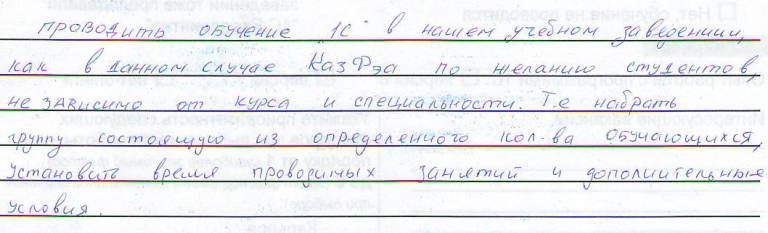 проводить обучение 1С в нашем учебном заведении,
как в данном случае КазФЭа по желанию студентов,
не зависимо от курса и специальности. Т.е набрать
группу состоящую из определенного кол-ва обучающихся,
установить время проводимых занятий и дополнительные
условия.